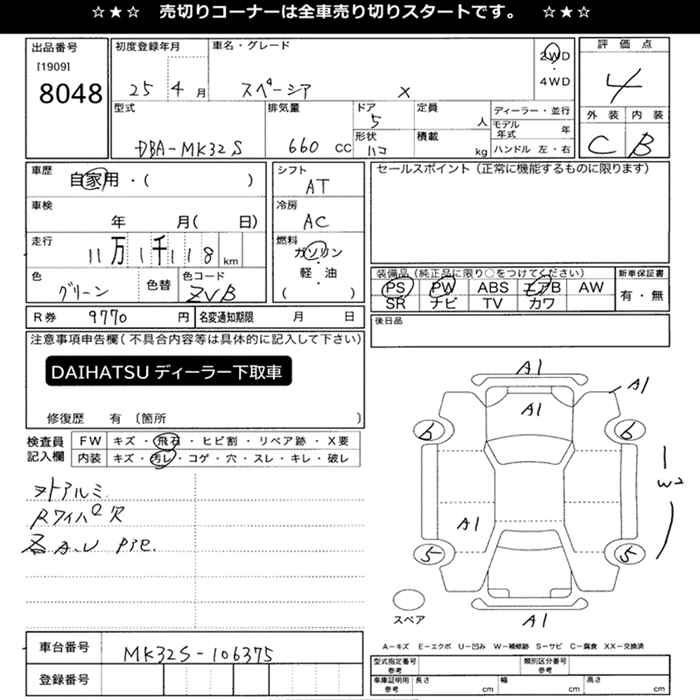 ☆★☆ 売切りコーナーは全車売り切りスタートです。 ☆★☆
出品番号 初度登録年月 車名・グレード 2WD 評価点
[1909] ・
8048 25 4月 スペーシア X 4WD 4
型式 排気量 ドア 定員 ディーラー・並行 外装 内装
5 人 モデル年式 年
DBA-MK32S 660 CC 形状 ハコ 積載 kg ハンドル 左・右 C B
車歴 シフト セールスポイント（正常に機能するものに限ります）
自家用・( ) AT
車検 冷房
年 月( 日) AC
走行 燃料
11万1千118km ガソリン
・
色 色替 色コード 軽・油 装備品（純正品に限り○をつけてください） 新車保証書
グリーン ZVB ( ) PS PW ABS エアB AW 有・無
SR ナビ TV カワ
R券 9770 円 名変通知期限 月 日 後日品
注意事項申告欄(不具合内容等は具体的に記入して下さい)
DAIHATSUディーラー下取車
修復歴 有 (箇所 )
検査員 FW キズ・飛石・ヒビ割・リペア跡・X要
記入欄 内装 キズ・汚レ・コゲ・穴・スレ・キレ・破レ
ヲトアルミ
Rワイパー欠
A1
A1 A1
6 6
W2
A1
5 5
スペア A1
A-キズ E-エクボ U-凹み W-補修跡 S-サビ C-腐食 XX-交換済
車台番号 MK32S-106375 型式指定番号 参考 類別区分番号 参考
登録番号 車庫証明用 参考 長さ cm 幅 cm 高さ cm